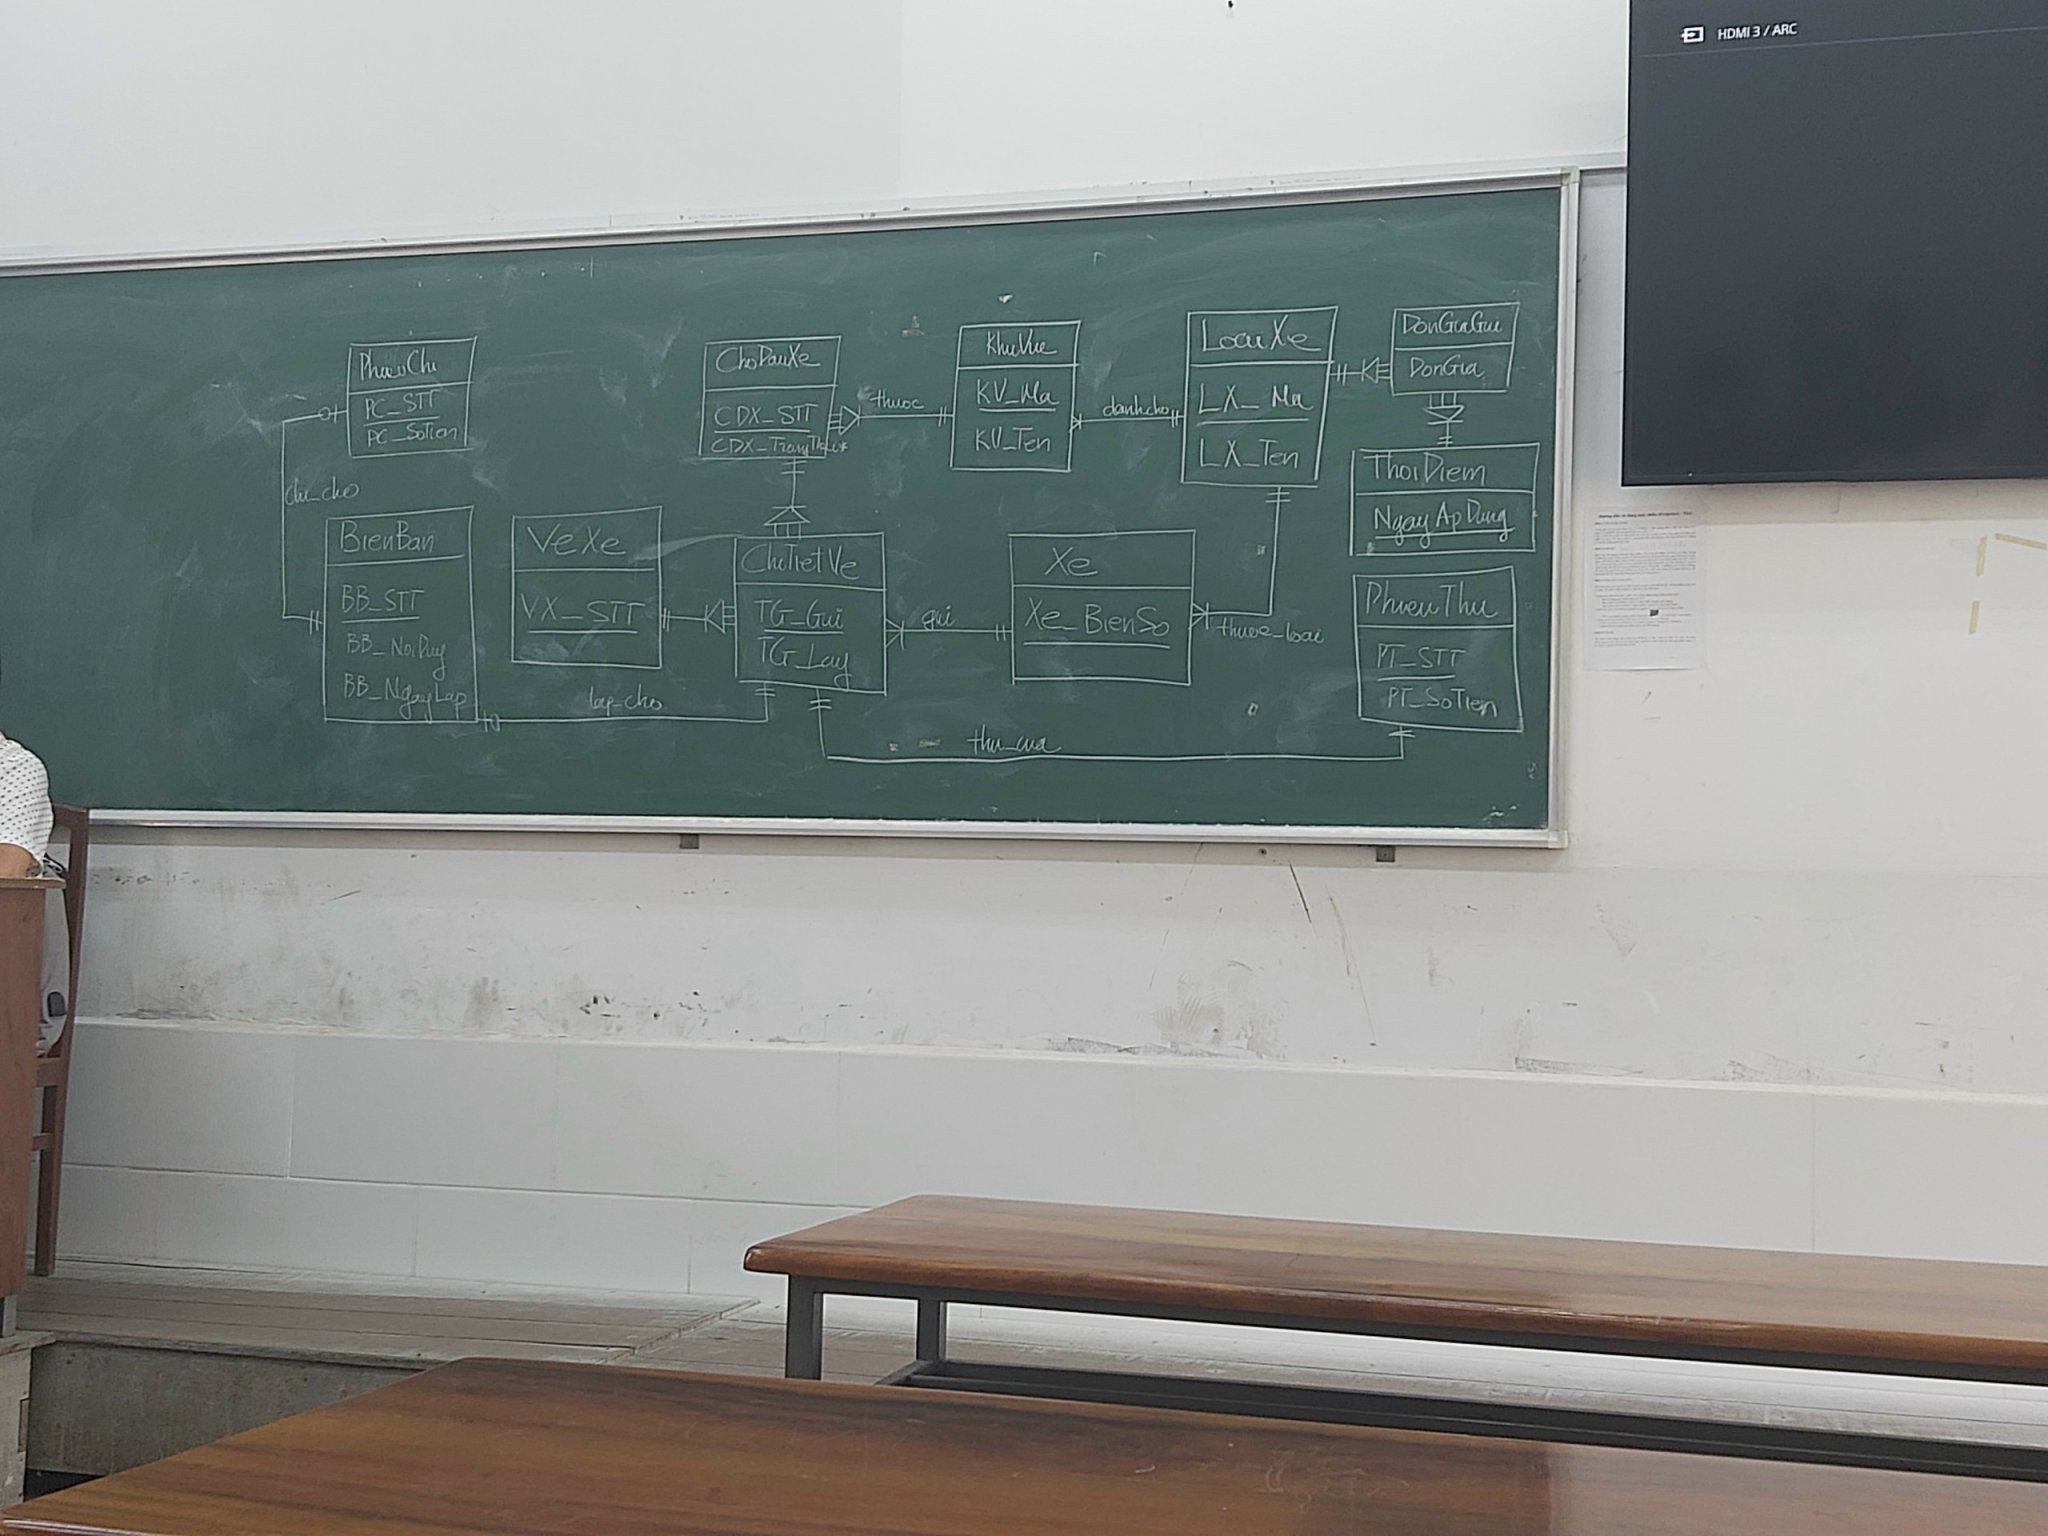 HDMI 3 / ARC
PhieuChi
PC_STT
PC_SoTien
ChoDauXe
CDX_STT
thuoc
KhuVuc
KV_Ma
KV_Ten
danhcho
LoaiXe
LX_Ma
LX_Ten
DonGiaGui
DonGia
ThoiDiem
NgayApDung
chi_cho
BienBan
BB_STT
BB_NoiDung
BB_NgayLap
VeXe
VX_STT
ChiTietVe
TG_Gui
TG_Lay
gui
Xe
Xe_BienSo
thuoc_loai
PhieuThu
PT_STT
PT_SoTien
lap_cho
thu_cua